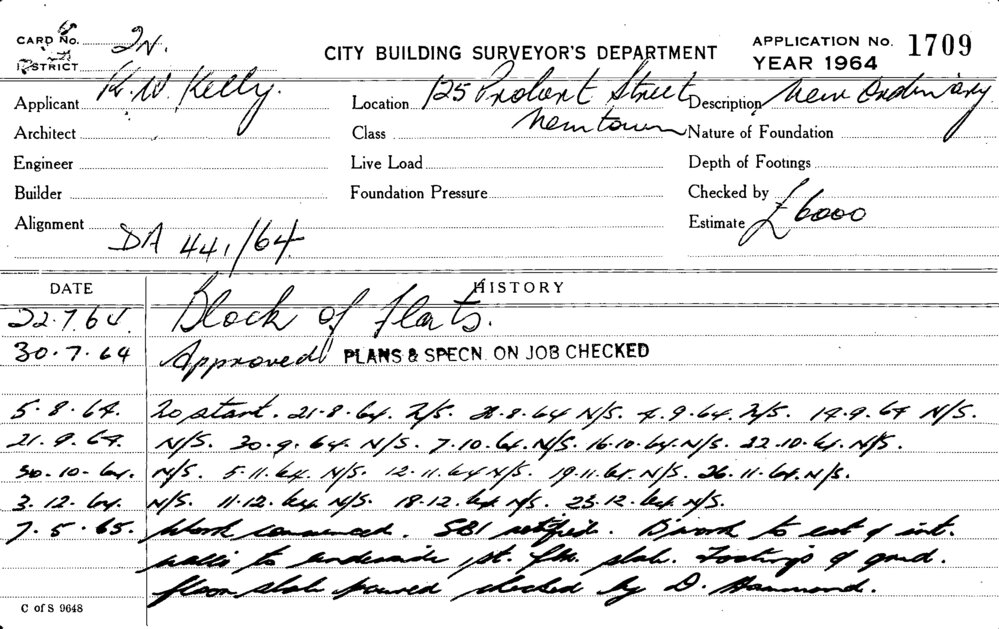 CARD No. 2N.
DISTRICT
CITY BUILDING SURVEYOR'S DEPARTMENT
APPLICATION No. 1709
YEAR 1964
Applicant K. W. Kelly.
Location 125 Probert Street
Newtown
Description New Ordinary
Architect
Class
Nature of Foundation
Engineer
Live Load
Depth of Footings
Builder
Foundation Pressure
Checked by
Alignment
Estimate £6000
DA 441/64
DATE HISTORY
22.7.64 Block of flats.
30.7.64 Approved PLANS & SPECN. ON JOB CHECKED
5.8.64. To start. 21.8.64. N/S. 28.8.64 N/S. 4.9.64. N/S. 14.9.64 N/S.
21.9.64. N/S. 30.9.64. N/S. 7.10.64. N/S. 16.10.64. N/S. 22.10.64. N/S.
30.10.64. N/S. 5.11.64. N/S. 12.11.64 N/S. 19.11.64. N/S. 26.11.64. N/S.
3.12.64. N/S. 11.12.64 N/S. 18.12.64 N/S. 23.12.64 N/S.
7.5.65. Work commenced. SBI notified. B'work to ext & int.
walls to underside 1st. flr. slab. Footings & grnd.
floor slab poured checked by D. Hammond.
C of S 9648